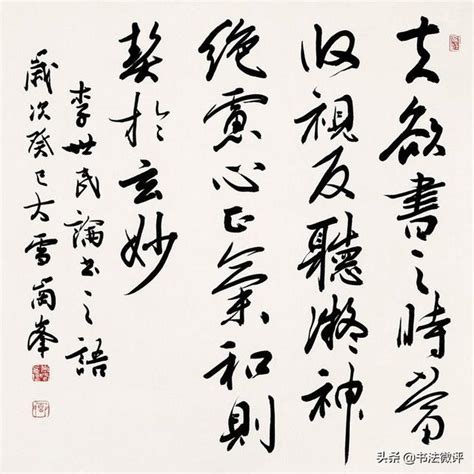 夫欲書之時當
收視反聽凝神
絶慮心正氣和則
契於玄妙
李世民論書之語
歲次癸巳大雪崗峰
头条 @书法微评